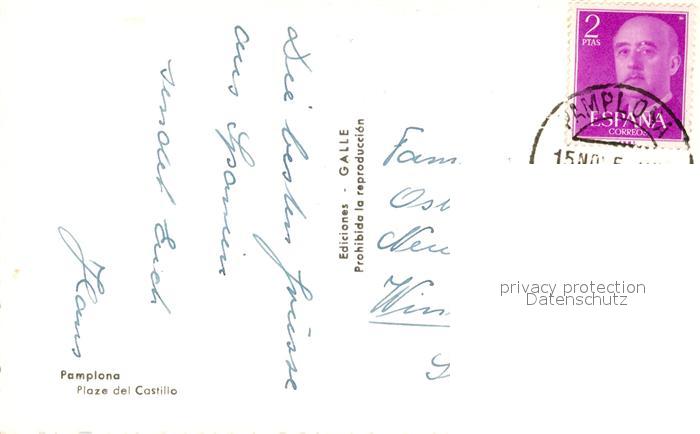 Die besten Grüsse
aus Spanien
sendet Euch
Hans
Pamplona
Plaze del Castillo
Ediciones - GALLE
Prohibida la reproducción
Fam
Neu
Win
2
PTAS
ESPAÑA
CORREOS
PAMPLONA
15 NOV
privacy protection
Datenschutz